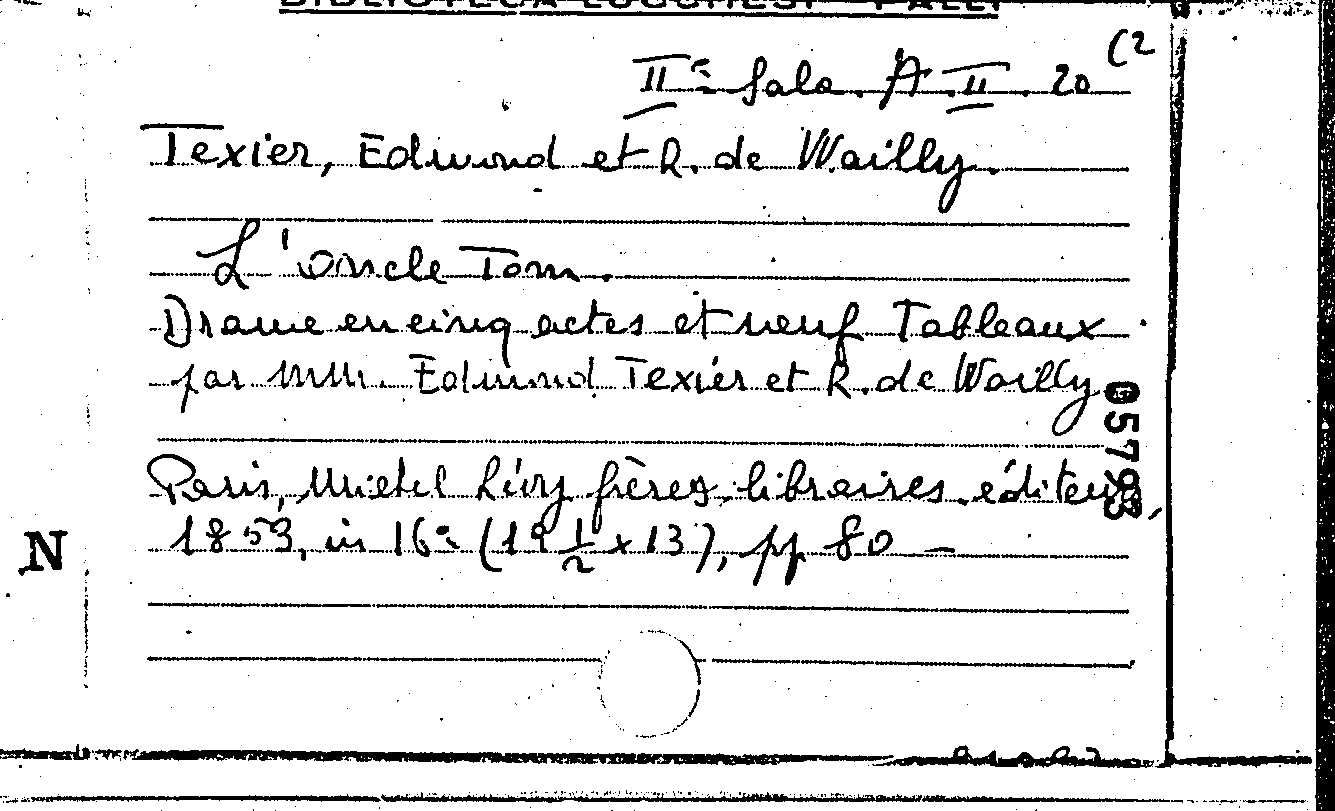 (2
IIª Sala. A.II. 20
Texier, Edmond et R. de Wailly.
L'oncle Tom.
Drame en cinq actes et neuf Tableaux
par MM. Edmond Texier et R. de Wailly
05793
Paris, Michel Lévy frères, libraires éditeurs,
1853, in 16º (19 1/2 x 13), pp 80 —
N